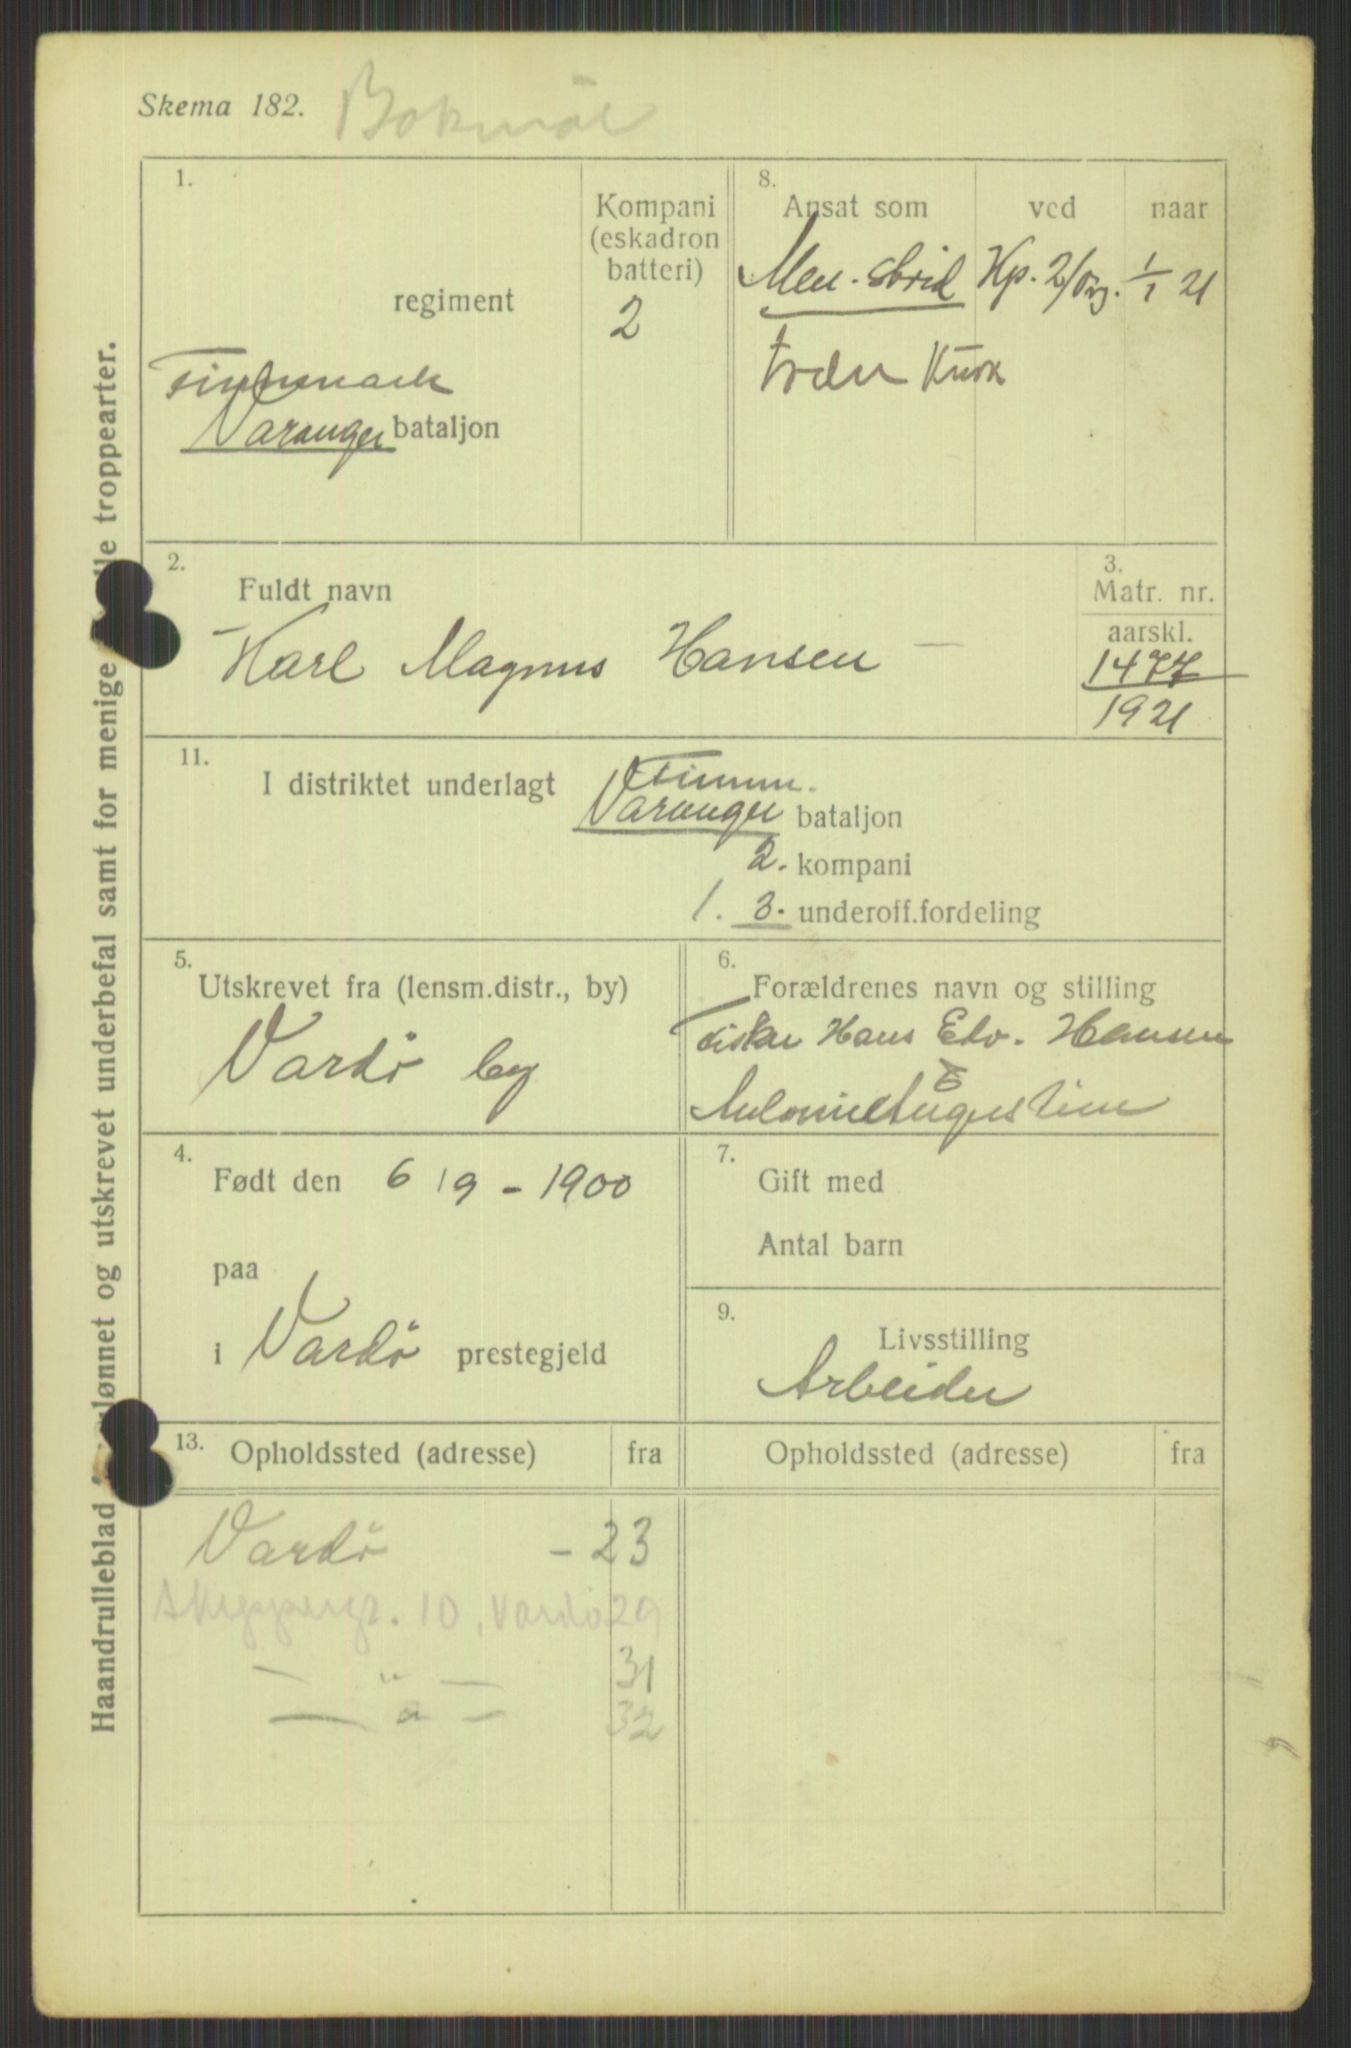 Skema 182. Bokmål
1.
regiment
Finnmark
Varanger bataljon
Kompani
(eskadron
batteri)
2
8.
Ansat som ved naar
Men. strid Kp. 2/Vrg. 1/1 21
træn Kusk
2.
Fuldt navn
Karl Magnus Hansen
3.
Matr. nr.
aarskl.
1477
1921
11.
I distriktet underlagt
Finnm.
Varanger bataljon
2. kompani
1. 3. underoff.fordeling
5.
Utskrevet fra (lensm.distr., by)
Vardø by
6.
Forældrenes navn og stilling
Fisker Hans Edv. Hansen
Augustine
4.
Født den 6/9 - 1900
paa
i Vardø prestegjeld
7.
Gift med
Antal barn
9.
Livsstilling
Arbeider
13.
Opholdssted (adresse) fra
Opholdssted (adresse) fra
Vardø - 23
Skippergt. 10, Vardø 29
— " — 31
— " — 32
Haandrulleblad lønnet og utskrevet underbefal samt for menige lle troppearter.